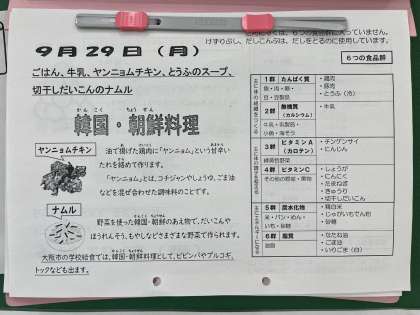 は、6つの食品群に入っていません。
けずりぶし、だしこんぶは、だしをとるのに使用しています。
9月29日（月）
ごはん、牛乳、ヤンニョムチキン、とうふのスープ、
切干しだいこんのナムル
かん こく ちょう せん
韓国・朝鮮料理
ヤンニョムチキン
油で揚げた鶏肉に「ヤンニョム」という甘辛い
たれを絡めて作ります。
「ヤンニョム」とは、コチジャンやしょうゆ、ごま油
などを混ぜ合わせた調味料のことです。
ナムル
野菜を使った韓国・朝鮮のあえ物で、だいこんや
ほうれんそう、もやしなどさまざまな野菜で作られます。
大阪市の学校給食では、韓国・朝鮮料理として、ビビンバやプルコギ、
トックなども出ます。
6つの食品群
1群 たんぱく質
魚・肉・卵・
豆・豆製品
・鶏肉
・豚肉
・とうふ（冷）
2群 無機質
（カルシウム）
牛乳・乳製品・
小魚・海そう
・牛乳
3群 ビタミンA
（カロテン）
緑黄色野菜
・チンゲンサイ
・にんじん
4群 ビタミンC
その他の野菜・果物
・しょうが
・にんにく
・たまねぎ
・きゅうり
・切干しだいこん
5群 炭水化物
米・パン・めん・
いも・砂糖
・精白米
・じゃがいもでん粉
・砂糖
6群 脂質
油脂
・なたね油
・ごま油
・いりごま（白）